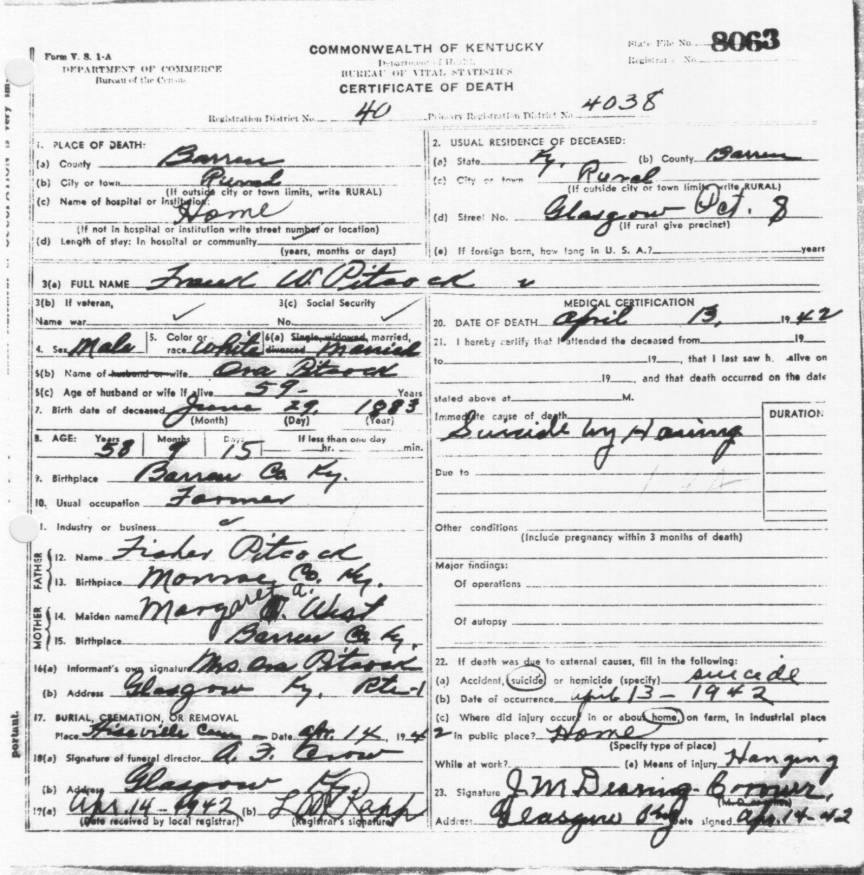 Form V. S. 1-A
DEPARTMENT OF COMMERCE
Bureau of the Census
COMMONWEALTH OF KENTUCKY
Department of Health
BUREAU OF VITAL STATISTICS
CERTIFICATE OF DEATH
State File No. 8063
Registrar's No.
Registration District No. 40 Primary Registration District No. 4038
1. PLACE OF DEATH:
(a) County Barren
(b) City or town Rural
(If outside city or town limits, write RURAL)
(c) Name of hospital or institution:
Home
(If not in hospital or institution write street number or location)
(d) Length of stay: In hospital or community
(years, months or days)
2. USUAL RESIDENCE OF DECEASED:
(a) State Ky. (b) County Barren
(c) City or town Rural
(If outside city or town limits write RURAL)
(d) Street No. Glasgow Pct. 8
(If rural give precinct)
(e) If foreign born, how long in U. S. A.? years
3(a) FULL NAME Frank W. Pitcock
3(b) If veteran, 3(c) Social Security
Name war No.
4. Sex Male 5. Color or race White 6(a) Single, widowed, married, divorced Married
6(b) Name of husband or wife Ora Pitcock
6(c) Age of husband or wife if alive 59 Years
7. Birth date of deceased June 29, 1883
(Month) (Day) (Year)
8. AGE: Years Months Days If less than one day
58 9 15 hr. min.
9. Birthplace Barren Co. Ky.
10. Usual occupation Farmer
11. Industry or business
FATHER
12. Name Fisher Pitcock
13. Birthplace Monroe Co. Ky.
MOTHER
14. Maiden name Margaret A. West
15. Birthplace Barren Co Ky.
16(a) Informant's own signature Mrs. Ora Pitcock
(b) Address Glasgow Ky. Rte-1
17. BURIAL, CREMATION, OR REMOVAL
Place Hiseville Cem Date Apr. 14, 1942
18(a) Signature of funeral director A. F. Crow
(b) Address Glasgow Ky.
19(a) Apr. 14-1942 (b)
(Date received by local registrar) (Registrar's signature)
MEDICAL CERTIFICATION
20. DATE OF DEATH April 13, 1942
21. I hereby certify that I attended the deceased from 19
to 19, that I last saw h. alive on
19, and that death occurred on the date
stated above at M.
Immediate cause of death DURATION
Suicide by Haning
Due to
Other conditions
(Include pregnancy within 3 months of death)
Major findings:
Of operations
Of autopsy
22. If death was due to external causes, fill in the following:
(a) Accident, suicide or homicide (specify) suicide
(b) Date of occurrence April 13-1942
(c) Where did injury occur in or about home, on farm, in industrial place
in public place? Home
(Specify type of place)
While at work? (e) Means of injury Hanging
23. Signature J. M Dearing-Coroner,
Address Glasgow Ky Date signed Apr. 14-42
portant.